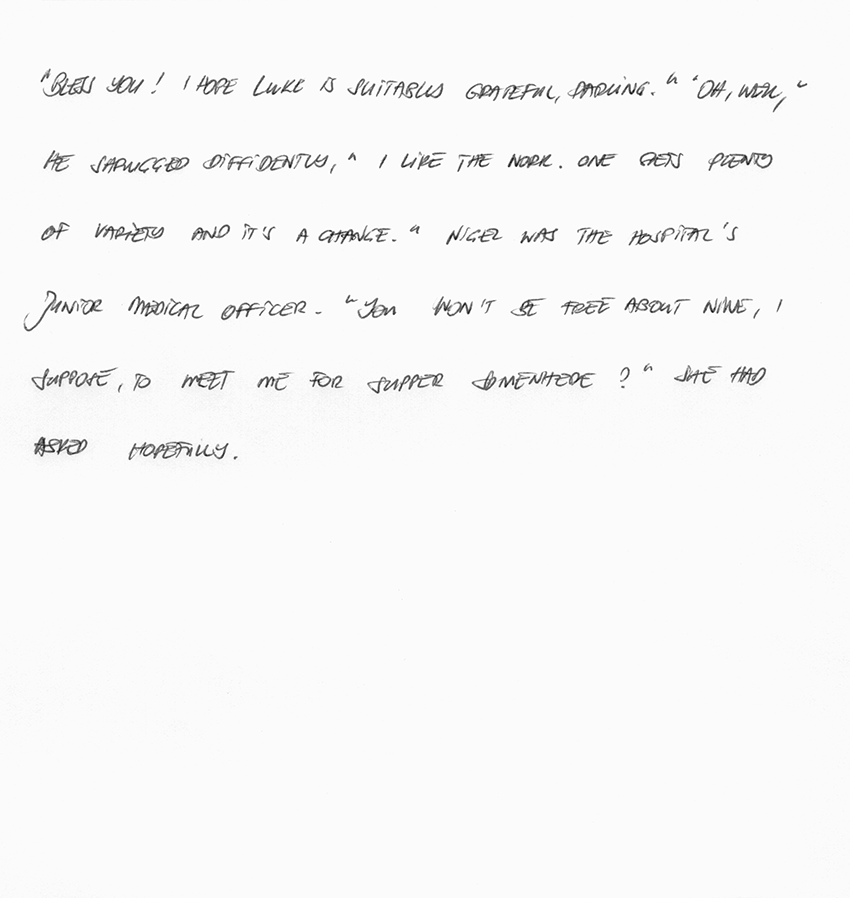 "BLESS YOU! I HOPE LUKE IS SUITABLY GRATEFUL, DARLING." "OH, WELL,"
HE SHRUGGED DIFFIDENTLY, " I LIKE THE WORK. ONE GETS PLENTY
OF VARIETY AND IT'S A CHANGE." NIGEL WAS THE HOSPITAL'S
JUNIOR MEDICAL OFFICER. "YOU WON'T BE FREE ABOUT NINE, I
SUPPOSE, TO MEET ME FOR SUPPER SOMEWHERE ?" SHE HAD
ASKED HOPEFULLY.